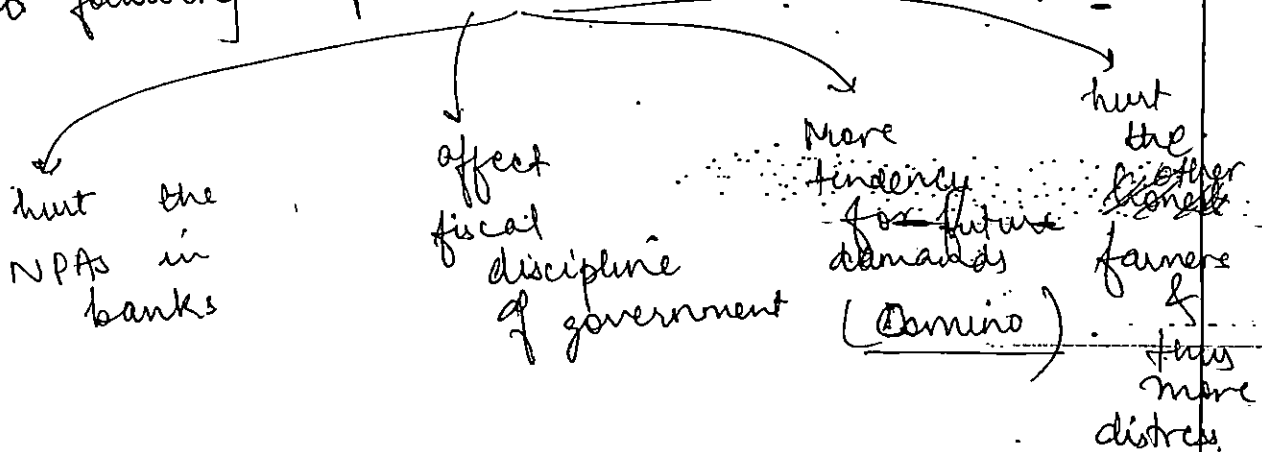 following]
hurt the
NPAs in
banks
affect
fiscal
discipline
of government
More
tendency
for future
demands
(Domino)
hurt
the
other
farmers
&
thus
more
distress